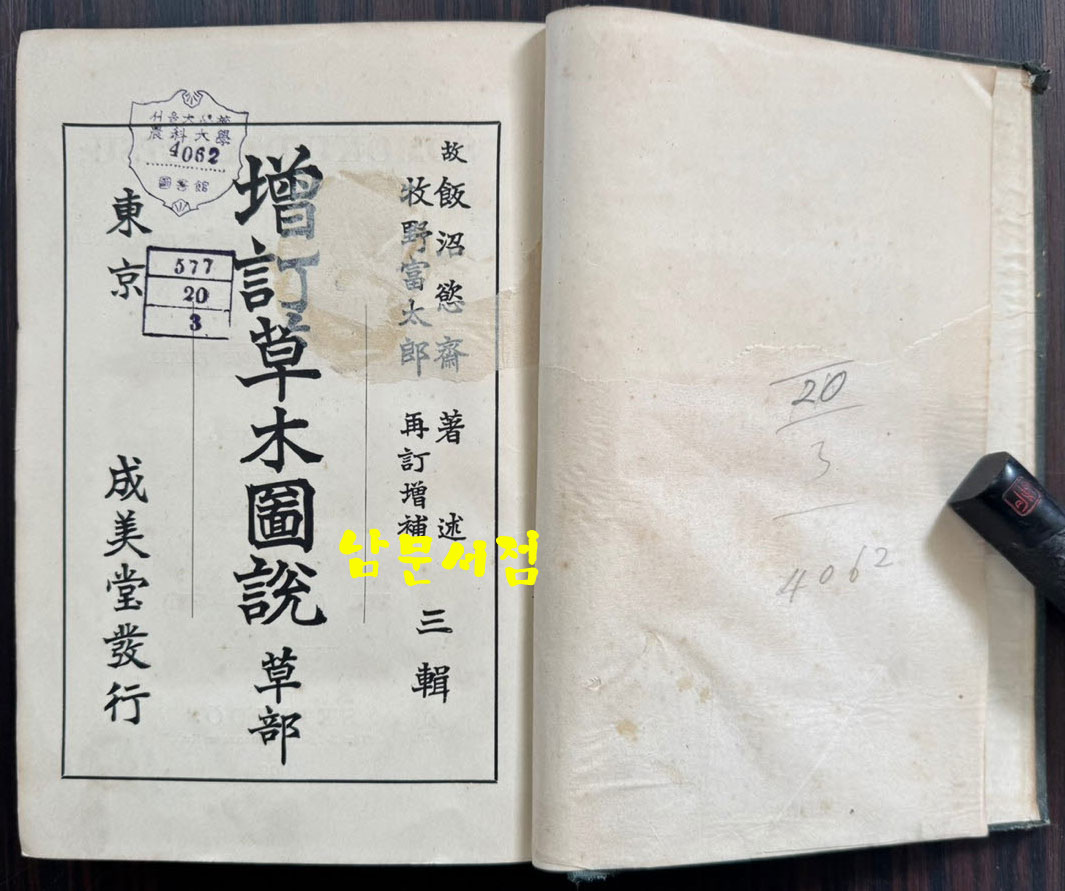 故 飯沼慾齋 著述
牧野富太郎 再訂增補
三輯
增訂草木圖說 草部
東京 成美堂發行
農科大學
4062
圖書館
577
20
3
남문서점
20
3
4062